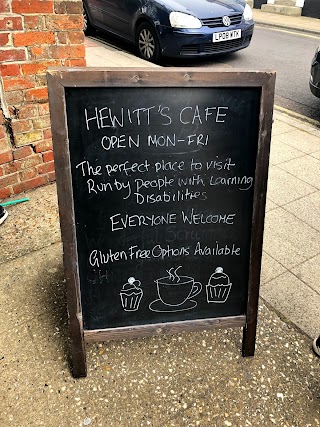 LP08 WTK
HEWITT'S CAFE
OPEN MON-FRI
The perfect place to visit
Run by People with Learning
Disabilities
EVERYONE WELCOME
Gluten Free Options Available